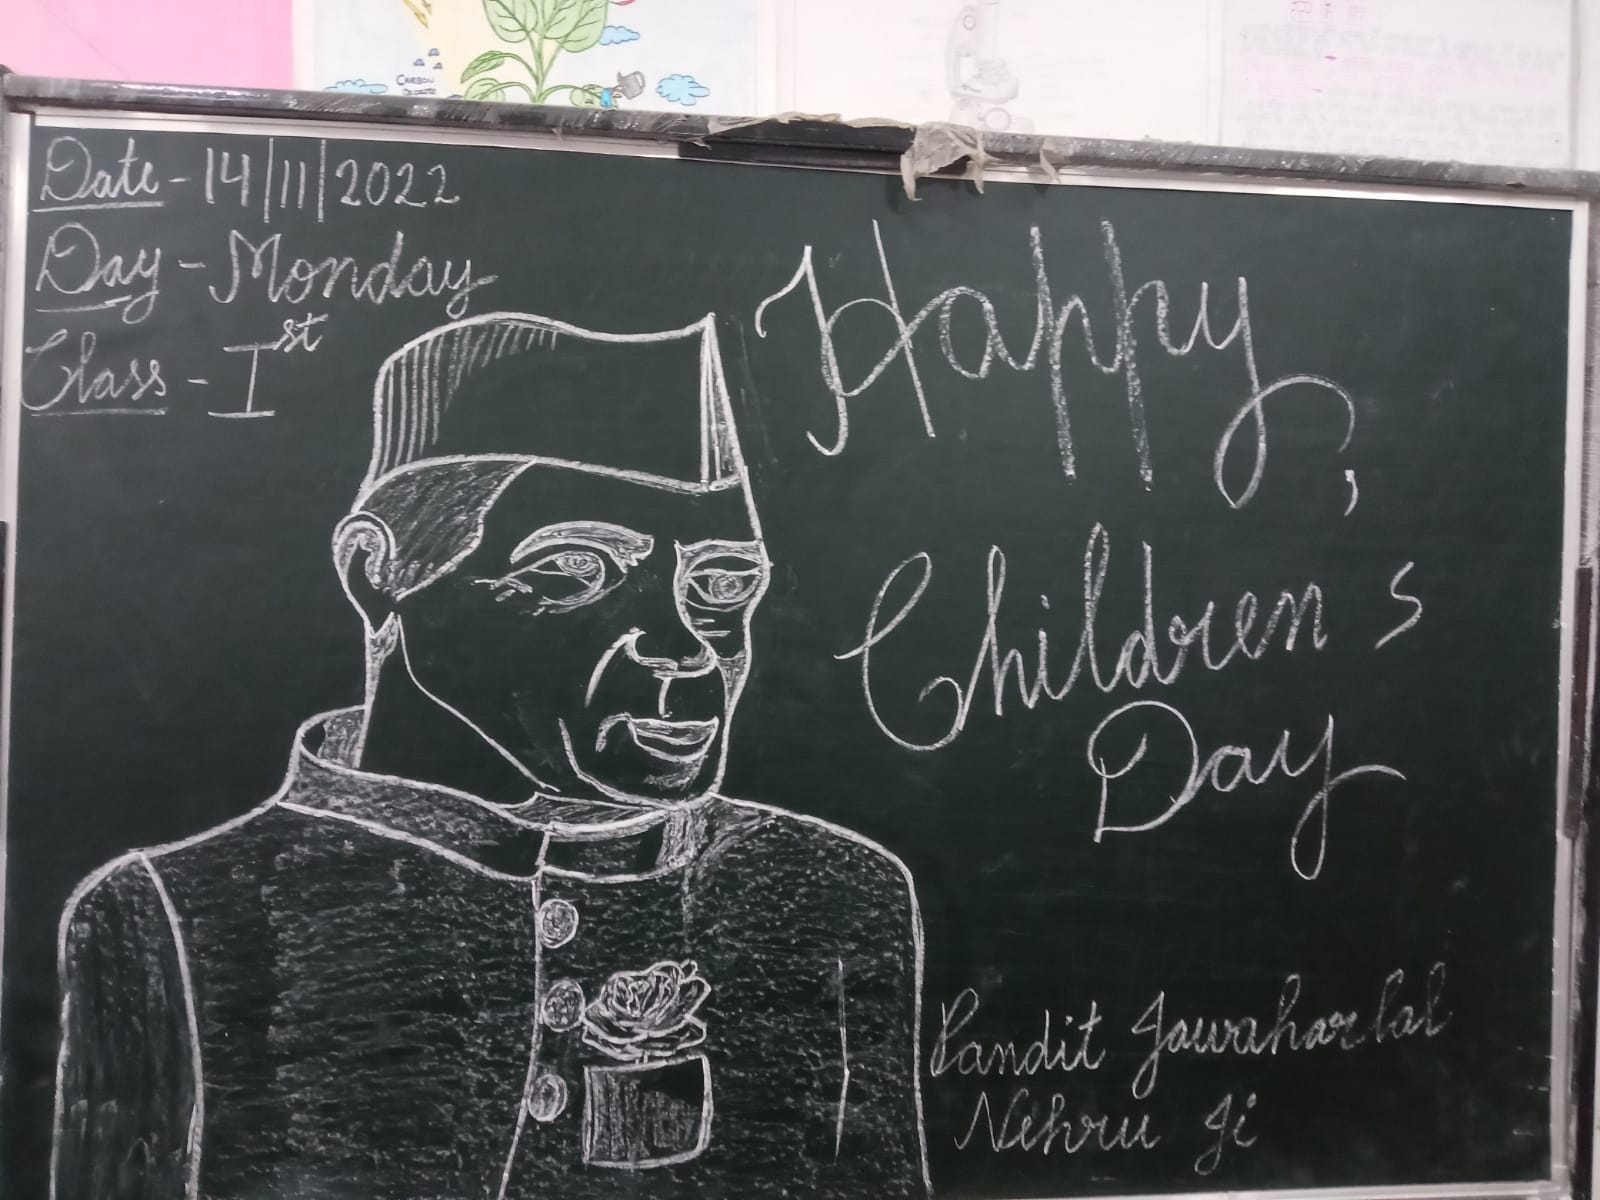 CARBON
Date - 14/11/2022
Day - Monday
Class - Ist
Happy,
Children s
Day
Pandit Jawaharlal
Nehru Ji